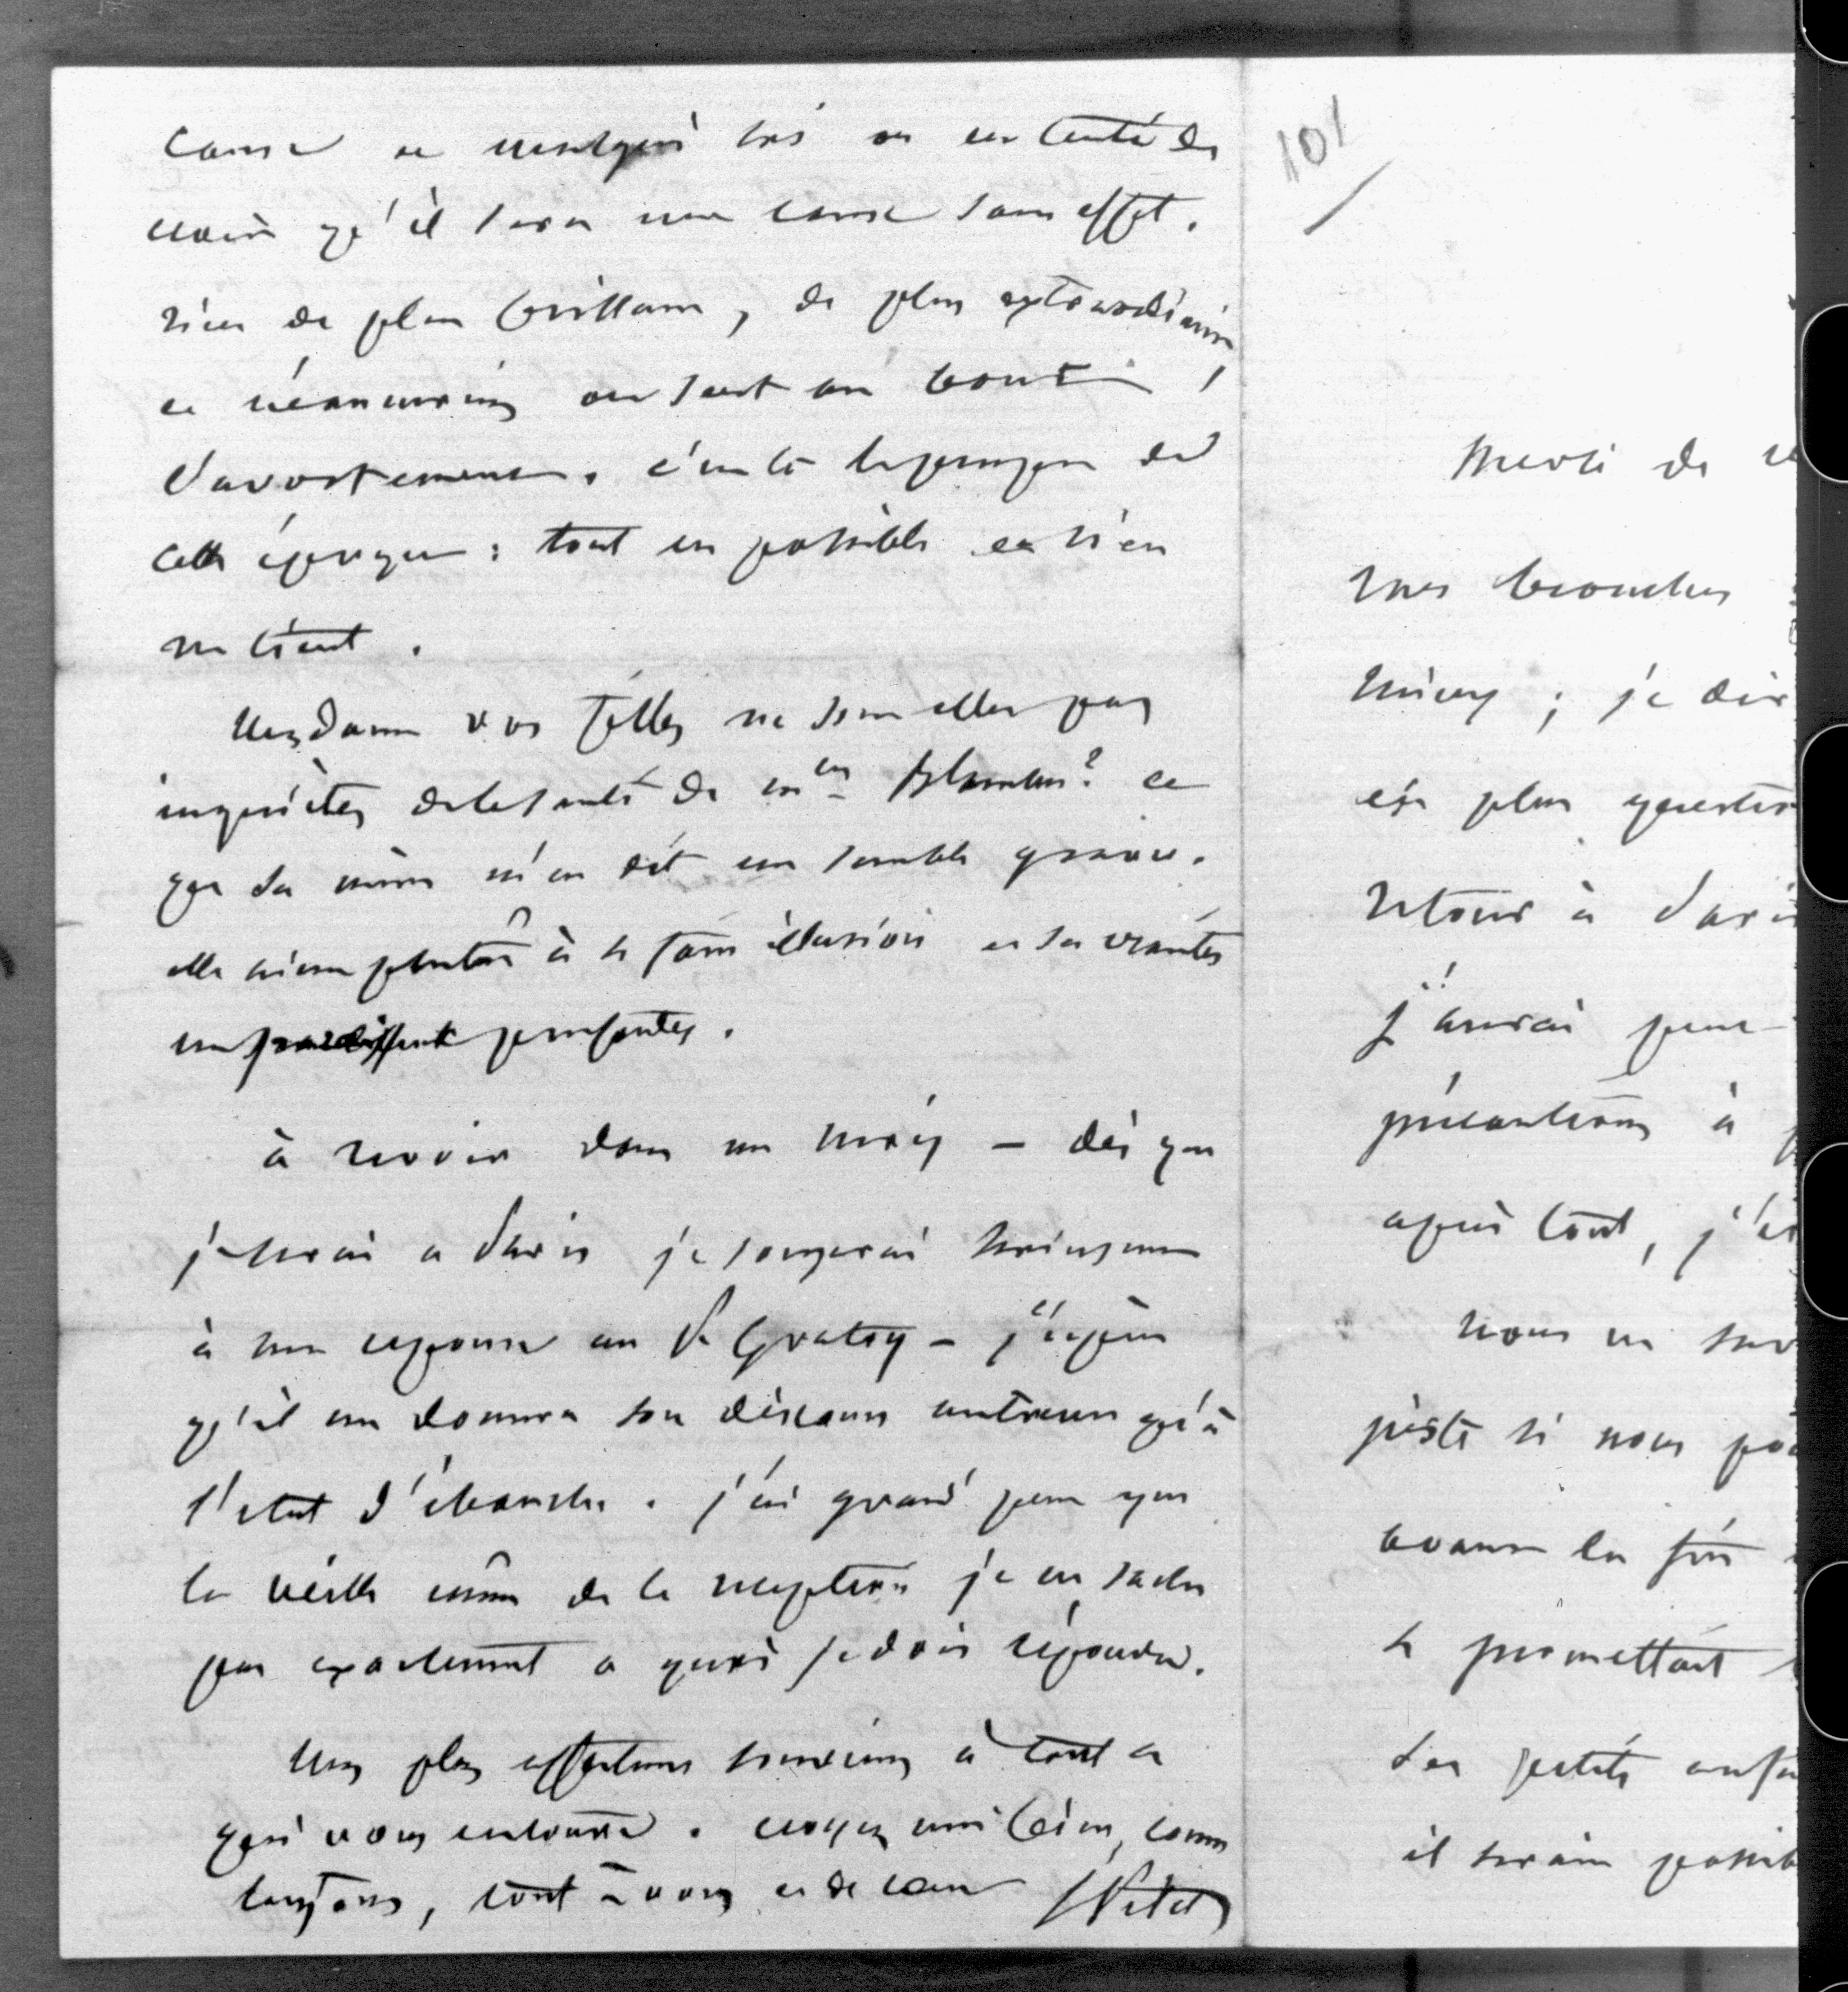 cause et malgré lui on est tenté de
croire qu'il sera une cause sans effet.
rien de plus brillant, de plus extraordinaire
et néanmoins on sent un
d'avortement. c'est là le propre de
cette époque : tout est possible et rien
ne tient.
Mesdames vos filles ne sont elles pas
inquiètes de la santé de ? ce
que sa mère m'en dit me semble grave.
elle aime plutôt à se faire illusion et ses craintes
me paraissent
à revoir dans un mois – dès que
je serai a Paris je songerai
à ma réponse au P. Gratry – j'espère
qu'il me donnera son discours autrement qu'à
l'état d'ébauche. j'ai grand peur que
la veille même de la reception je ne sache
pas exactement a quoi je dois répondre.
Mes plus affectueux souvenirs à tout ce
qui vous entoure. croyez moi bien, comme
toujours, tout à vous et de cœur L Vitet
101
Merci de
mes branches
mieux ; je
est plus question
retour à Paris
j'aurai peut
précautions à
après tout, j'
nous ne
juste si nous
avant la fin
se promettait
des petits
il serait